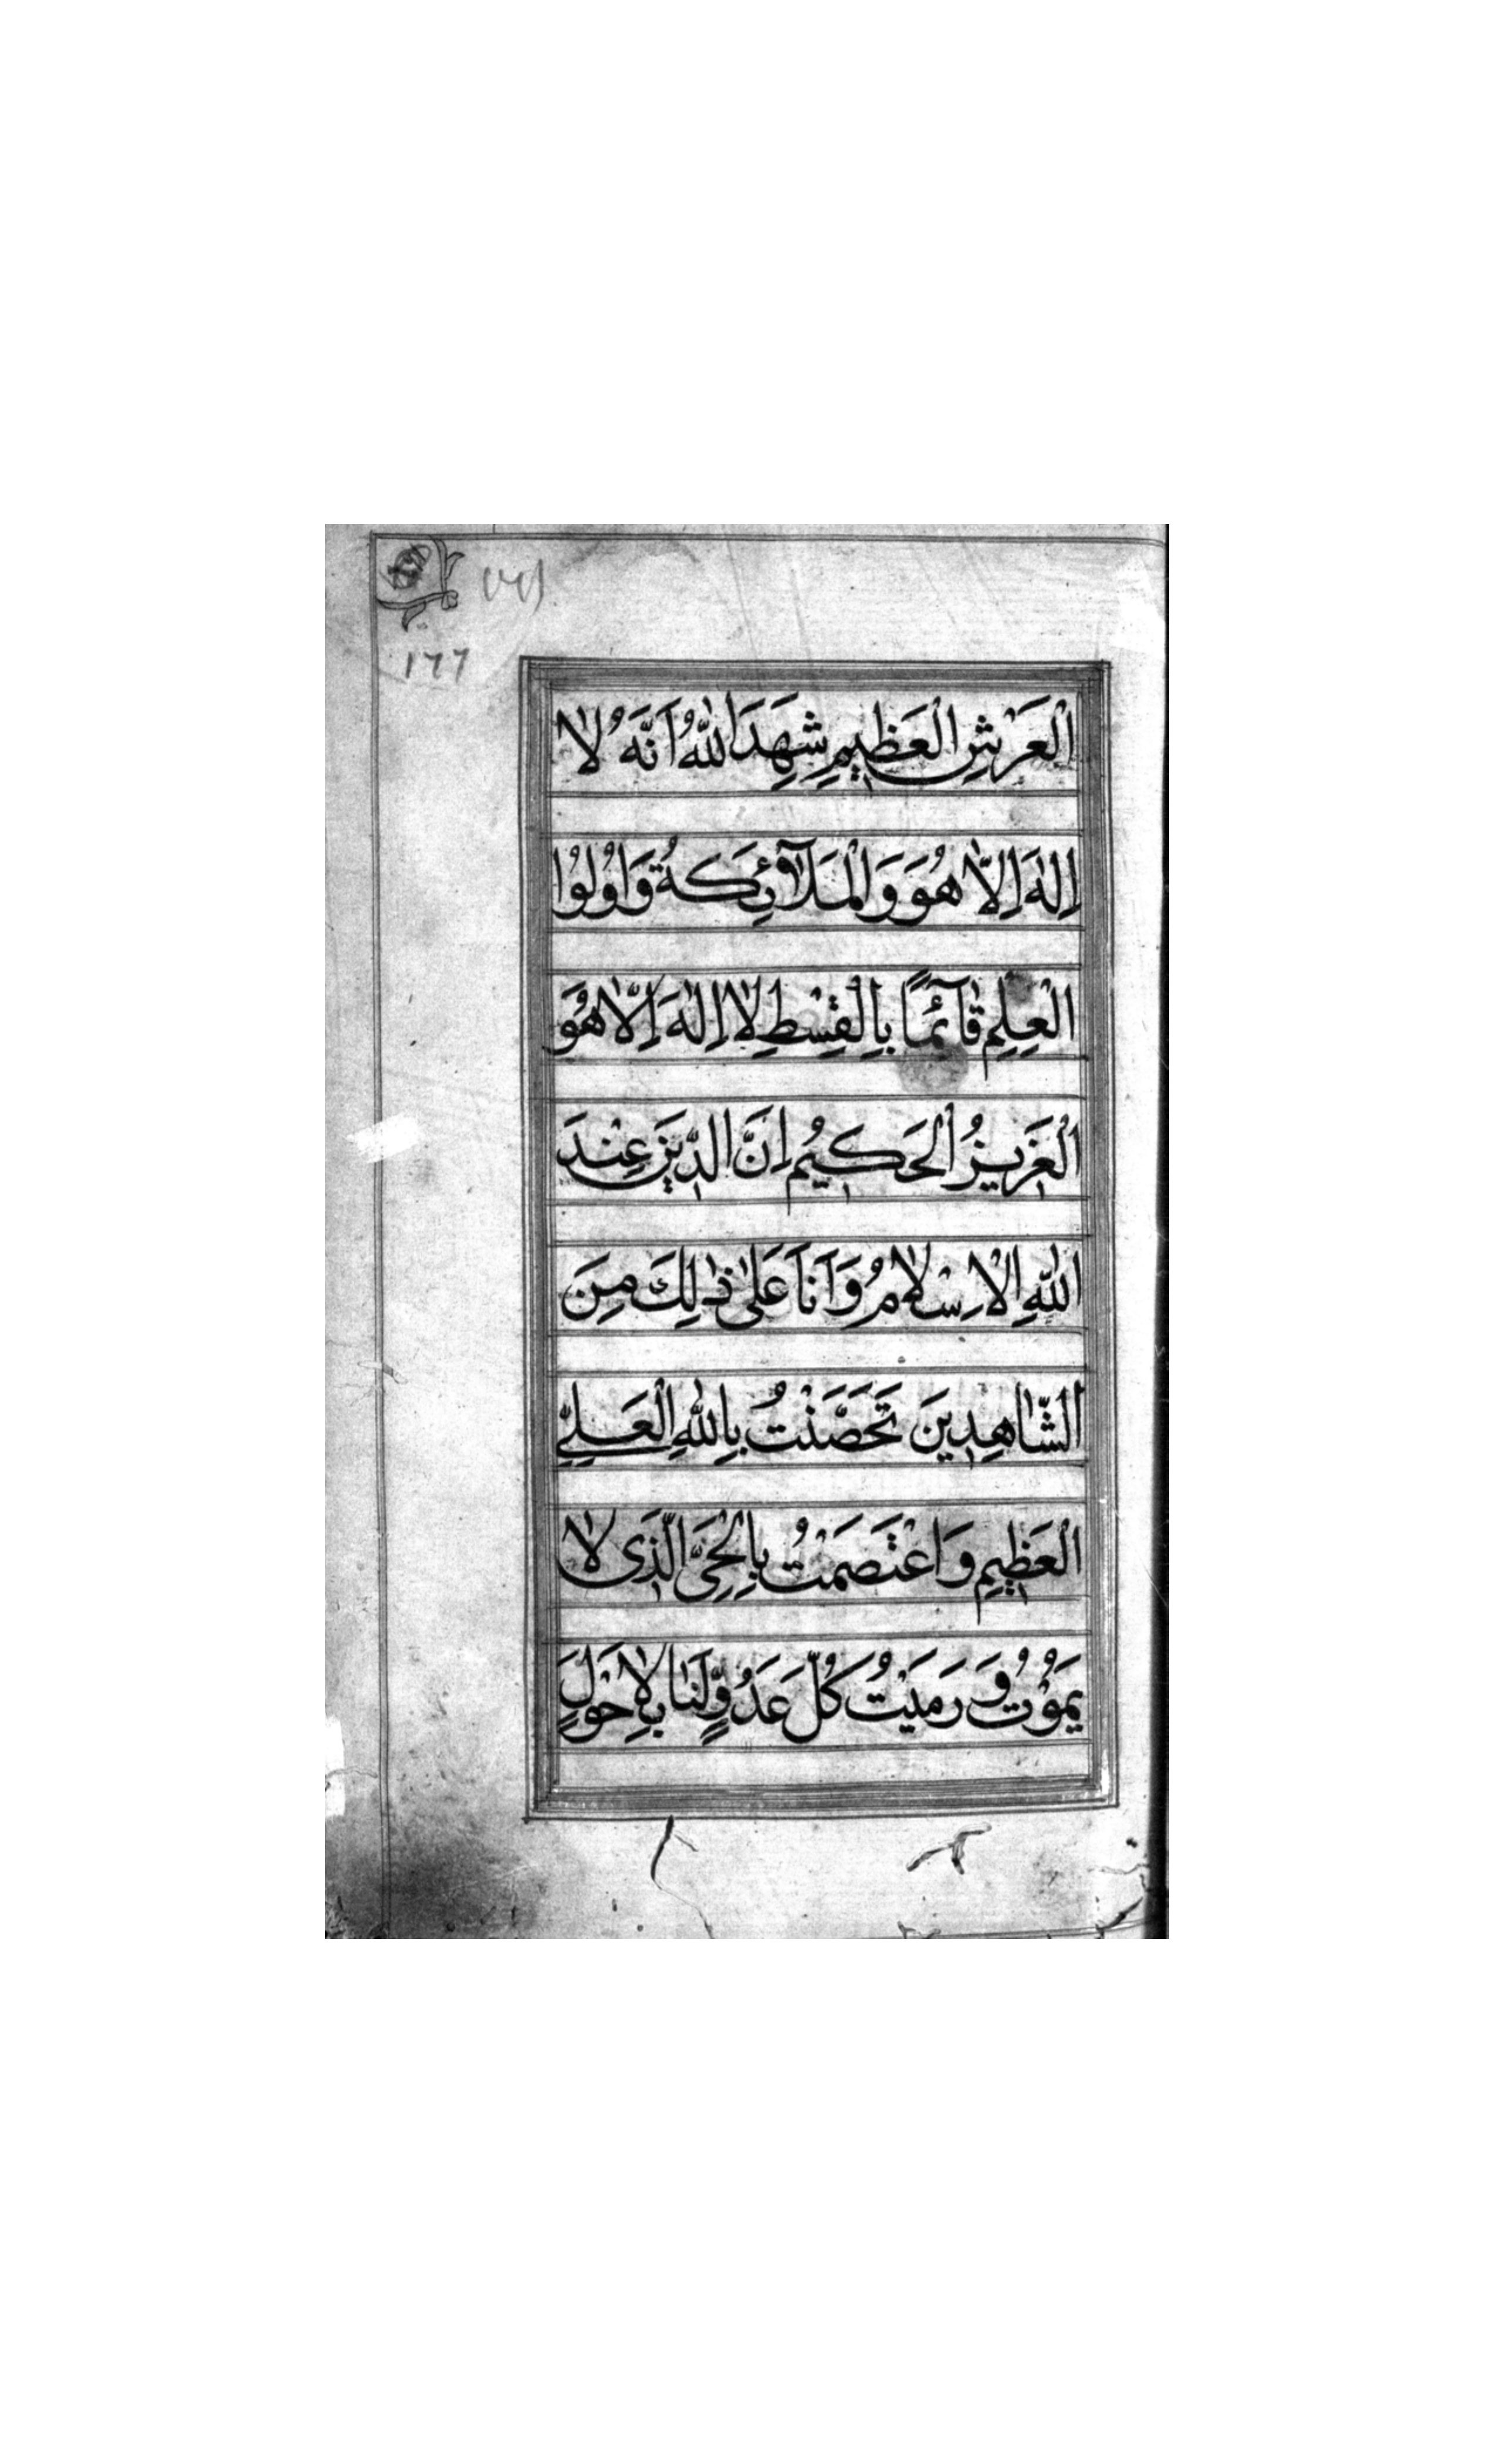 ١٦٦
الْعَرْشِ الْعَظِيمِ شَهِدَ اللّٰهُ اَنَّهُ لَا
اِلٰهَ اِلَّا هُوَ وَالْمَلَآئِكَةُ وَاُولُوا
الْعِلْمِ قَآئِمًا بِالْقِسْطِ لَا اِلٰهَ اِلَّا هُوَ
الْعَزِيزُ الْحَكِيمُ اِنَّ الدِّينَ عِنْدَ
اللّٰهِ الْاِسْلَامُ وَاَنَا عَلٰى ذٰلِكَ مِنَ
الشَّاهِدِينَ تَحَصَّنْتُ بِاللّٰهِ الْعَلِيِّ
الْعَظِيمِ وَاعْتَصَمْتُ بِالْحَىِّ الَّذِى لَا
يَمُوْتُ وَرَمَيْتُ كُلَّ عَدُوٍّ لَنَا بِلَاحَوْلَ